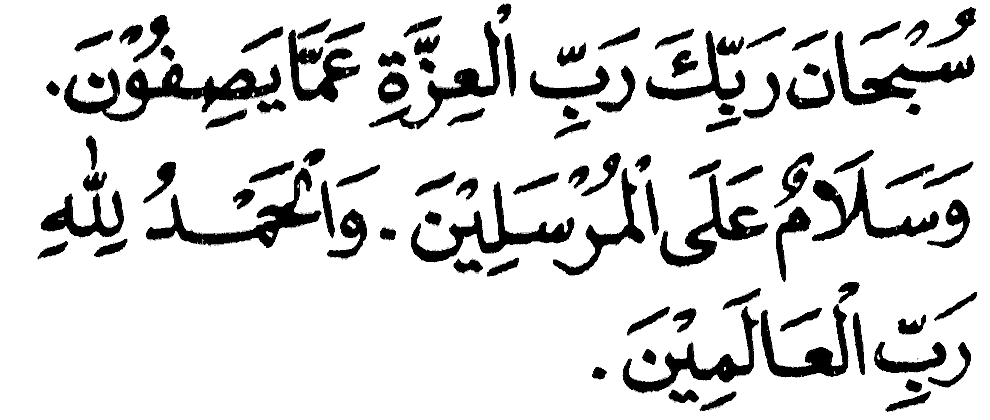 سُبْحَانَ رَبِّكَ رَبِّ الْعِزَّةِ عَمَّا يَصِفُوْنَ.
وَسَلَامٌ عَلَى الْمُرْسَلِيْنَ. وَالْحَمْدُ لِلّٰهِ
رَبِّ الْعَالَمِيْنَ.